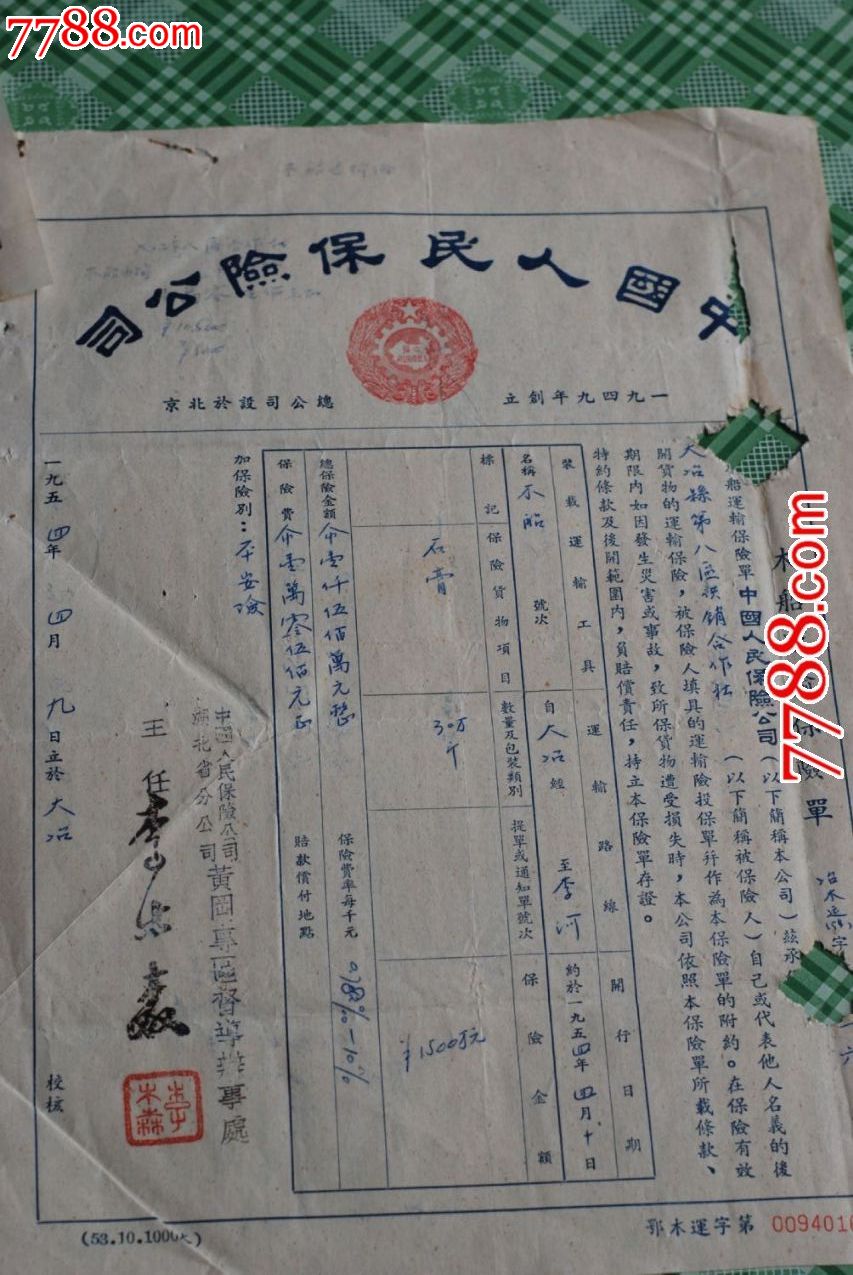 7788.com
中國人民保險公司
一九四九年創立
總公司設於北京
船運輸保險單
中國人民保險公司(以下簡稱本公司)茲承
大冶縣第八區供銷合作社(以下簡稱被保險人)自己或代表他人名義的後
開貨物的運輸保險,被保險人填具的運輸險投保單幷作為本保險單的附約。在保險有效
期限內如因發生災害或事故,致所保貨物遭受損失時,本公司依照本保險單所載條款、
特約條款及後開範圍內,負賠償責任,特立本保險單存證。
裝載運輸工具 運輸路線 開行日期
名稱 木船 號次 自大冶經 至李河 約於一九五四年四月十日
標記 保險貨物項目 數量及包裝類別 提單或通知單號次 保險金額
石膏 30万斤 ¥1500万元
總保險金額 壹仟伍佰萬元整 保險費率每千元
保險費 壹萬零伍佰元正 賠款償付地點
加保險別:平安險
中國人民保險公司
湖北省分公司 黃岡專區督導辦事處
主任
一九五四年四月九日立於大冶 校核
(53.10.1000
鄂木運字第 0094010
7788.com